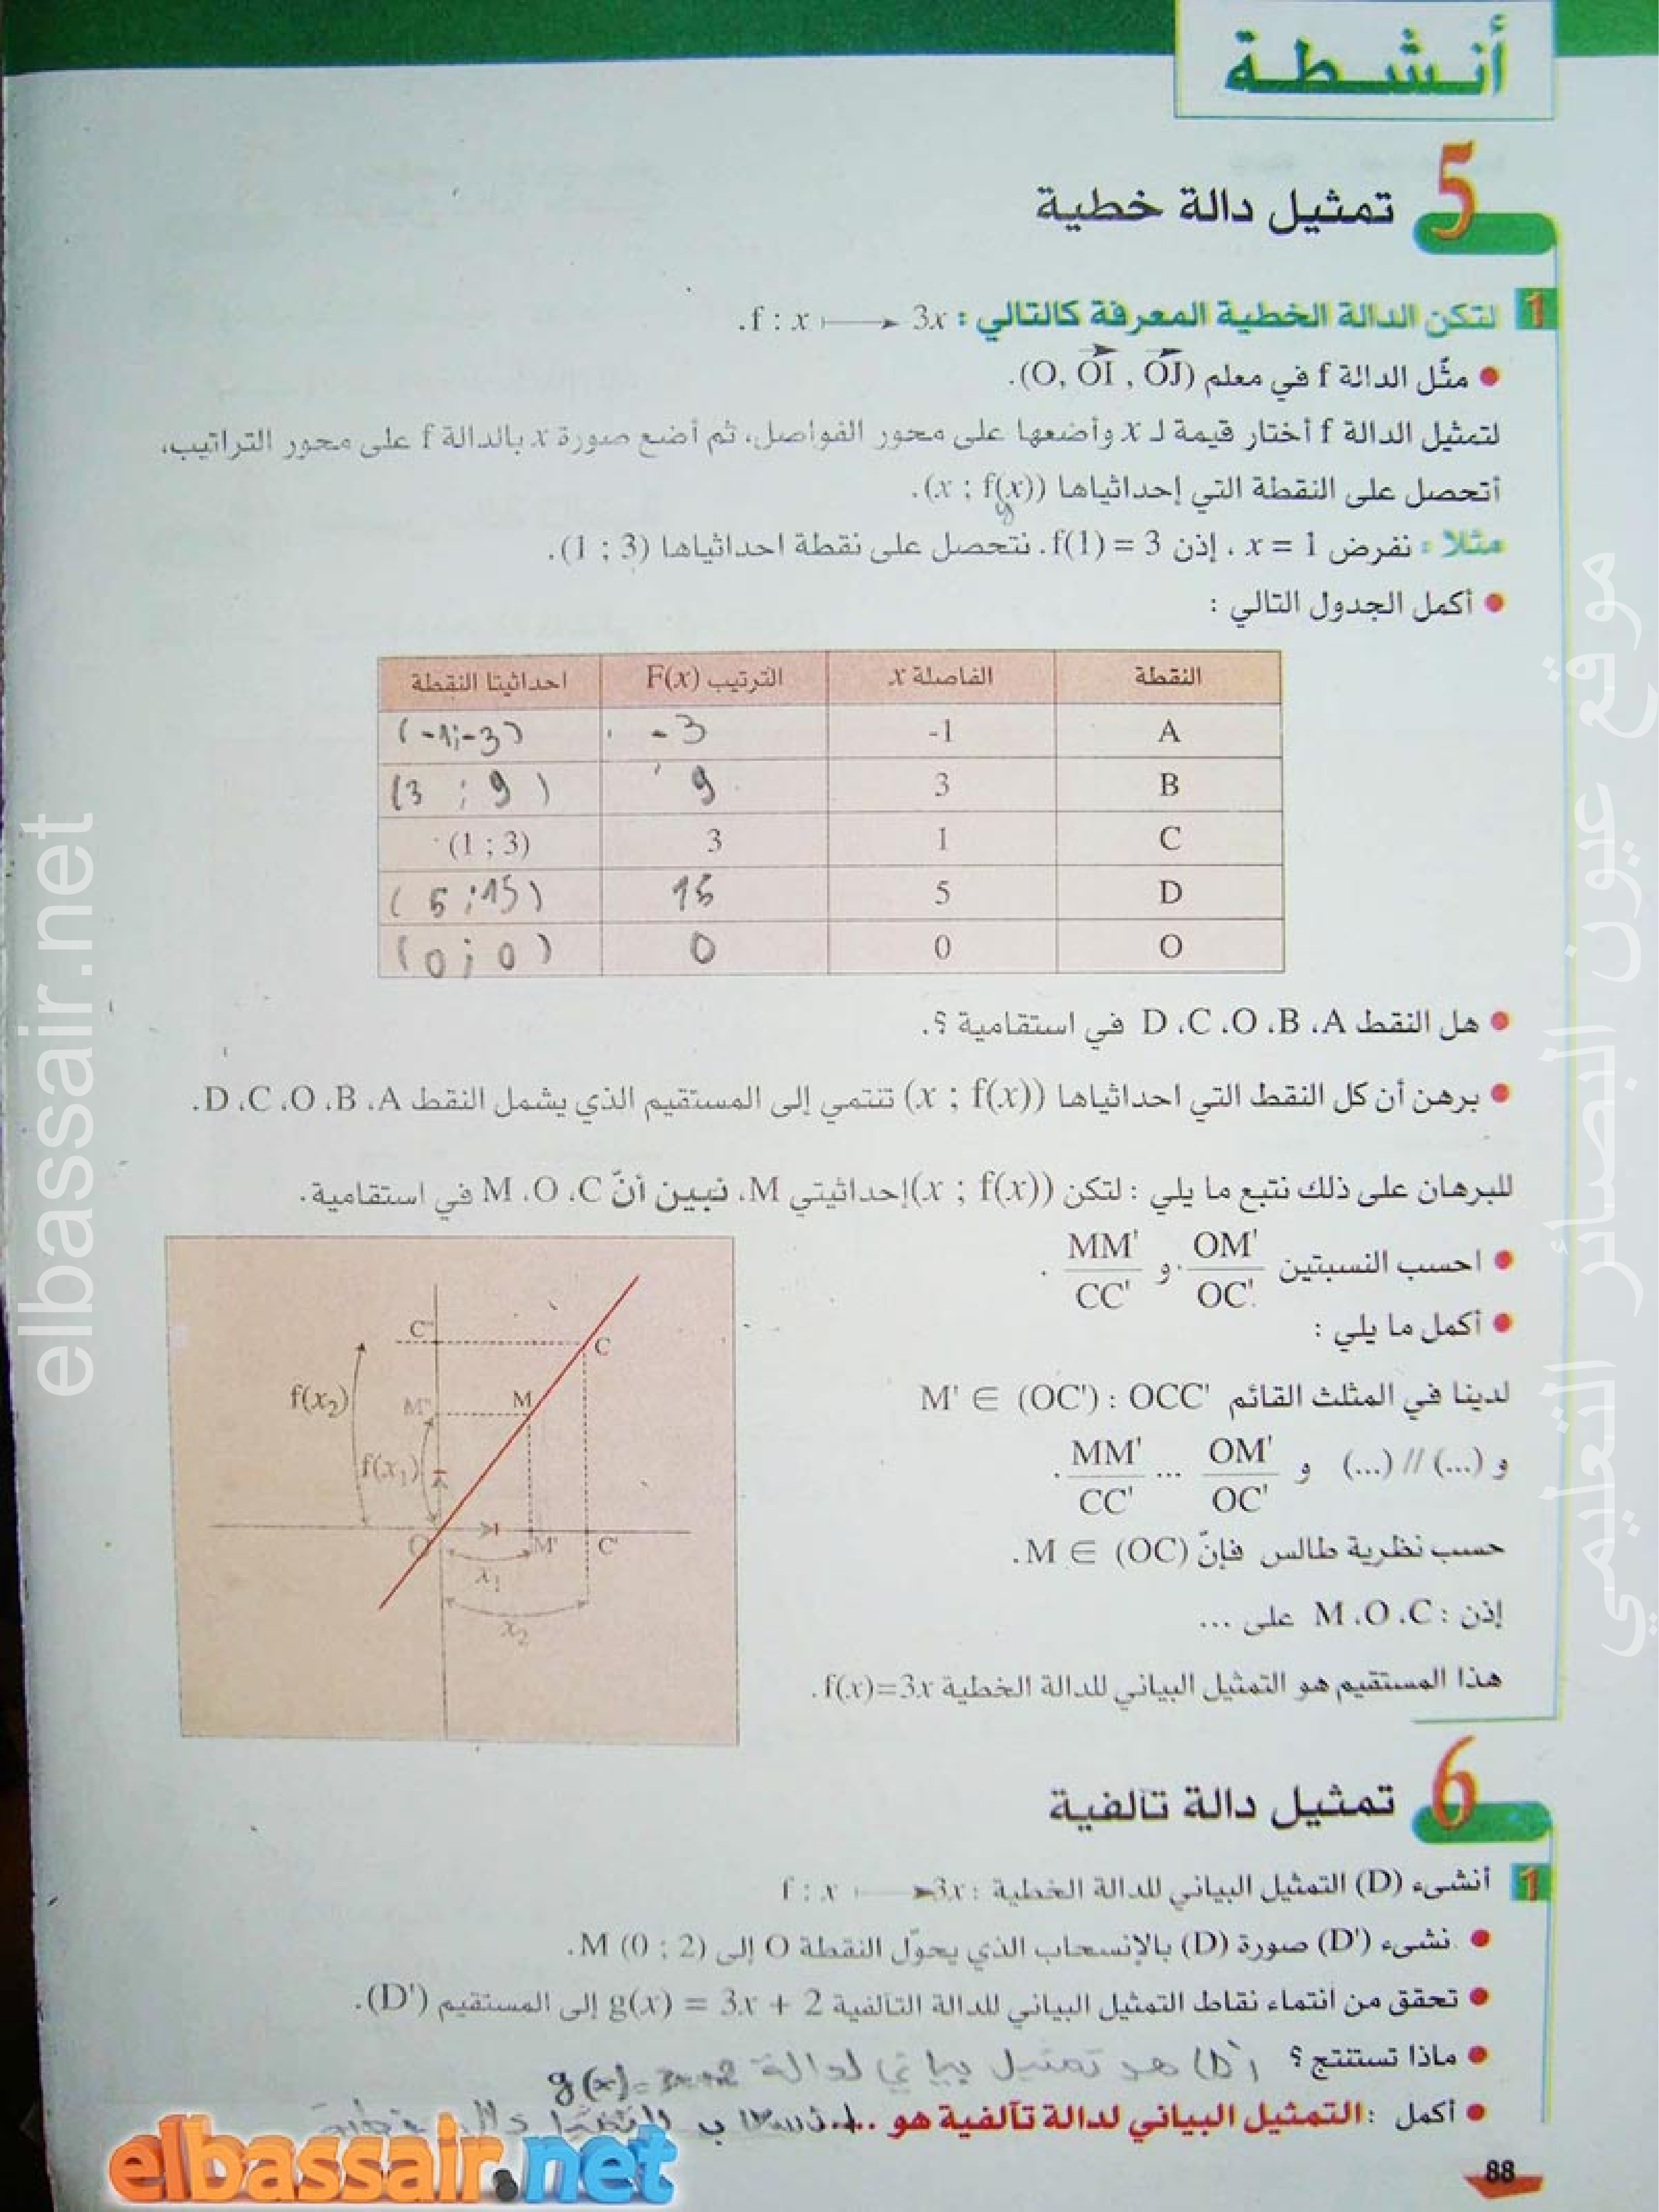 أنشطة
5
تمثيل دالة خطية
1 لتكن الدالة الخطية المعرفة كالتالي : f : x ⟼ 3x.
● مثّل الدالة f في معلم (O, OI , OJ).
لتمثيل الدالة f أختار قيمة لـ x وأضعها على محور الفواصل، ثم أضع صورة x بالدالة f على محور التراتيب،
أتحصل على النقطة التي إحداثياها (x ; f(x)).
y
مثلا : نفرض x = 1 ، إذن f(1) = 3. نتحصل على نقطة احداثياها (1 ; 3).
● أكمل الجدول التالي :
النقطة الفاصلة x الترتيب F(x) احداثيتا النقطة
A -1 -3 (-1;-3)
B 3 9 (3 ; 9)
C 1 3 (1 ; 3)
D 5 15 (5 ; 15)
O 0 0 (0 ; 0)
● هل النقط D ،C ،O ،B ،A في استقامية ؟.
● برهن أن كل النقط التي احداثياها (x ; f(x)) تنتمي إلى المستقيم الذي يشمل النقط D ،C ،O ،B ،A.
للبرهان على ذلك نتبع ما يلي : لتكن (x ; f(x)) إحداثيتي M، نبين أنّ M ،O ،C في استقامية.
● احسب النسبتين OM'/OC' و MM'/CC' .
● أكمل ما يلي :
لدينا في المثلث القائم OCC' : M' ∈ (OC')
و (...) // (...) و OM'/OC' ... MM'/CC' .
حسب نظرية طالس فإنّ M ∈ (OC).
إذن : M ،O ،C على ...
هذا المستقيم هو التمثيل البياني للدالة الخطية f(x)=3x.
C"
C
f(x₂)
M"
M
f(x₁)
O
I
M'
C'
x₁
x₂
6
تمثيل دالة تآلفية
1 أنشىء (D) التمثيل البياني للدالة الخطية : f : x ⟼ 3x
● نشىء (D') صورة (D) بالإنسحاب الذي يحوّل النقطة O إلى M (0 ; 2).
● تحقق من انتماء نقاط التمثيل البياني للدالة التآلفية g(x) = 3x + 2 إلى المستقيم (D').
● ماذا تستنتج ؟ (D') هو تمثيل بياني لدالة
g(x)=3x+2
● أكمل : التمثيل البياني لدالة تآلفية هو ..
88
elbassair.net
elbassair.net
موقع عيون البصائر التعليمي